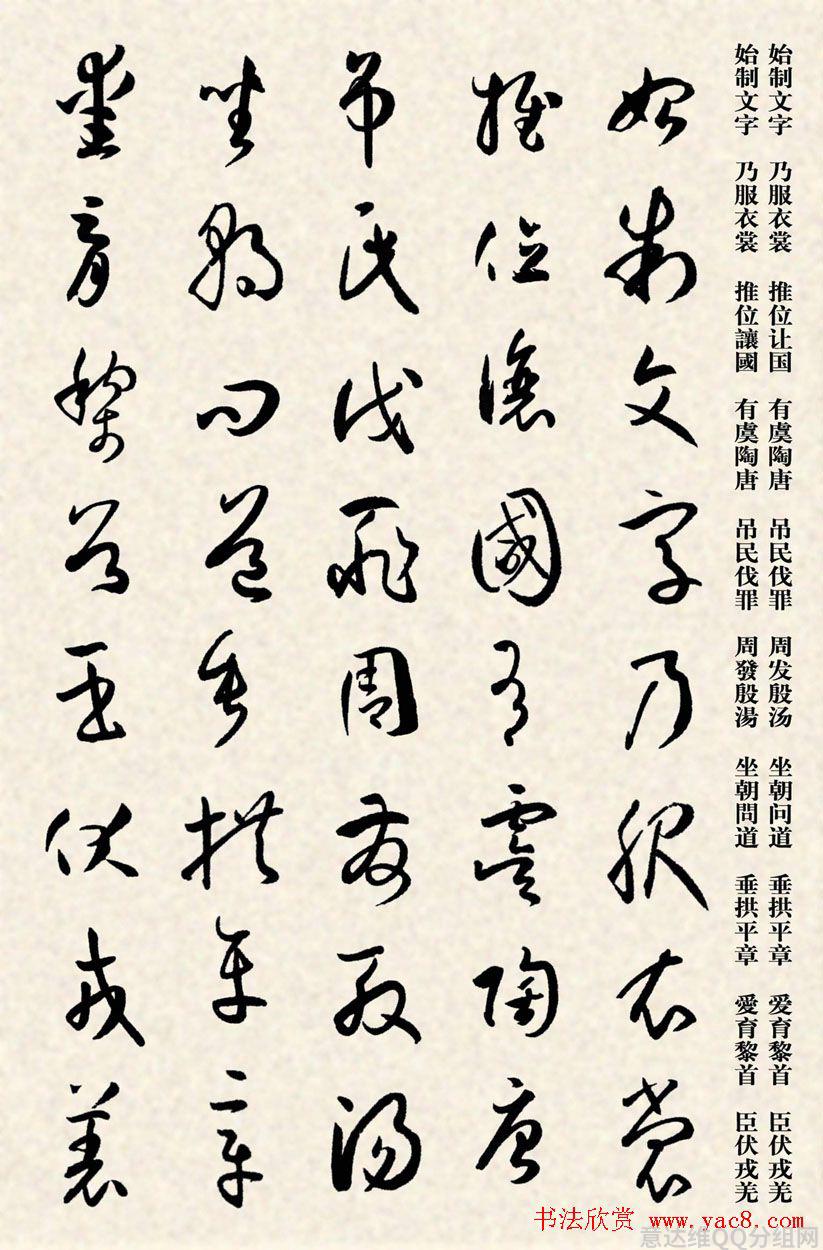 始制文字 乃服衣裳 推位让国 有虞陶唐 吊民伐罪 周发殷汤 坐朝问道 垂拱平章 爱育黎首 臣伏戎羌
始制文字 乃服衣裳 推位讓國 有虞陶唐 吊民伐罪 周發殷湯 坐朝問道 垂拱平章 愛育黎首 臣伏戎羌
始制文字乃服衣裳
推位讓國有虞陶唐
吊民伐罪周發殷湯
坐朝問道垂拱平章
愛育黎首臣伏戎羌
书法欣赏 www.yac8.com
意达维QQ分组网